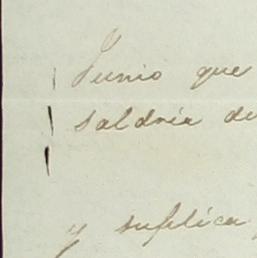 Junio que
saldría de
y suplica